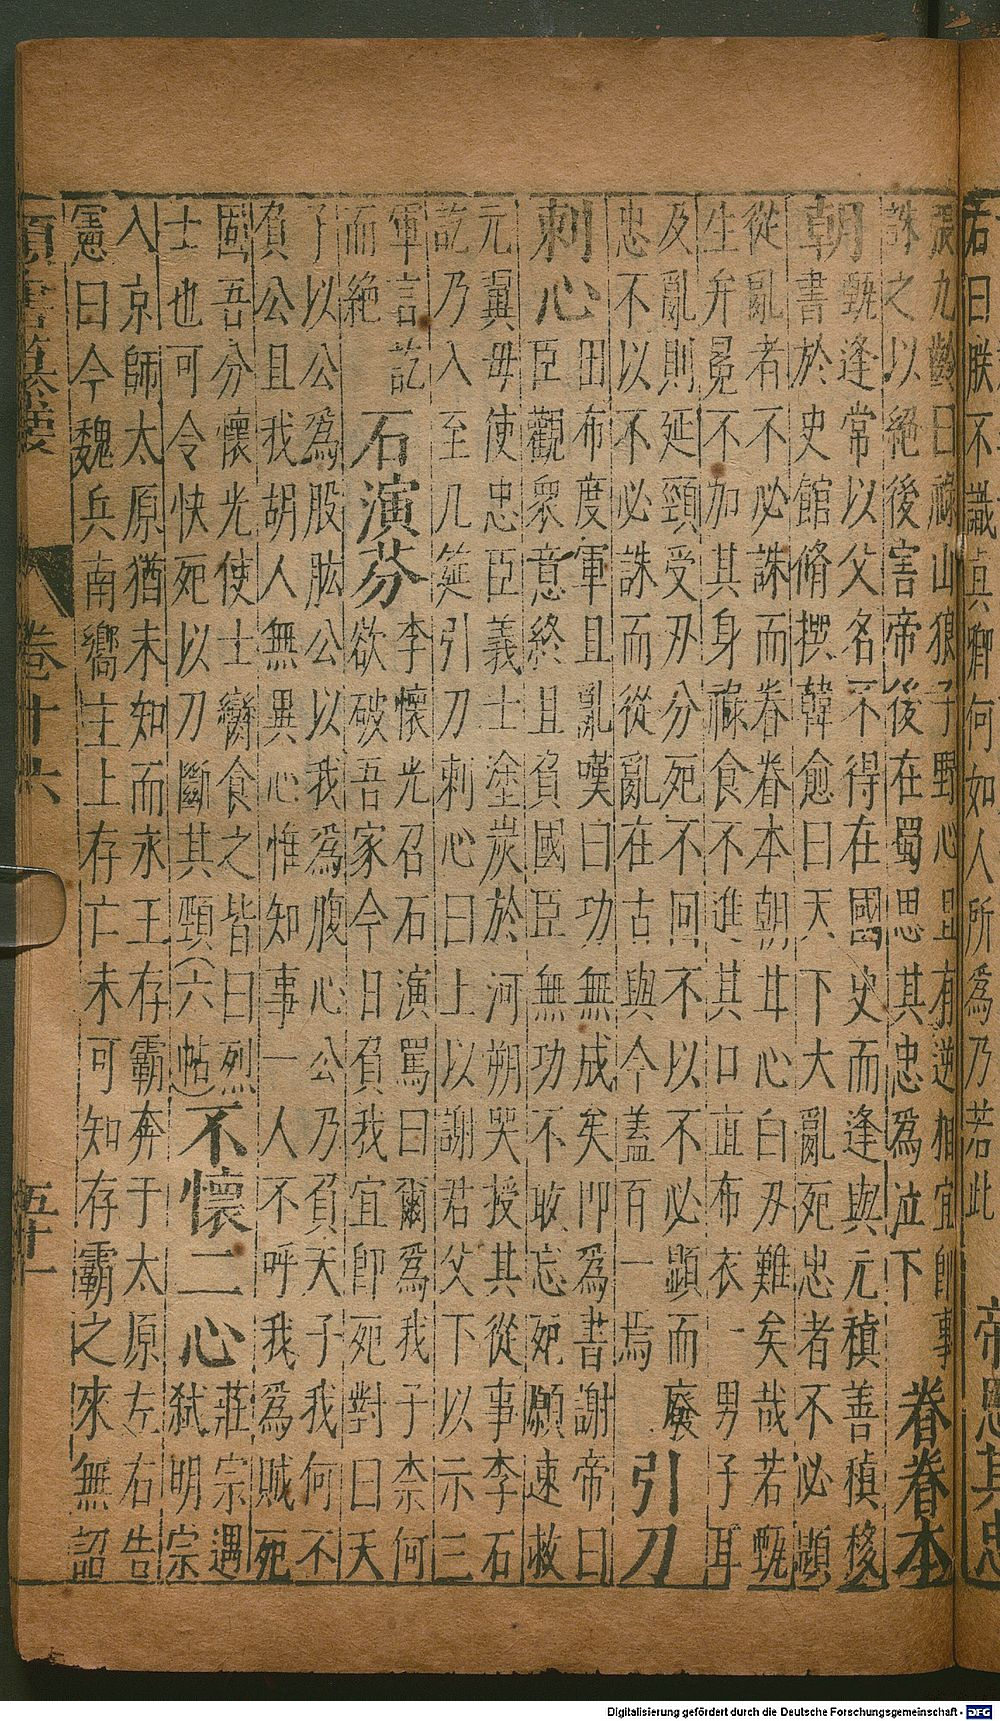 若曰朕不識真卿何如人所爲乃若此
帝思其忠
張九齡曰祿山狼子野心且有逆相宜即事
誅之以絕後害帝後在蜀思其忠爲泣下
眷眷本
朝
甄逢常以父名不得在國史而逢與元稹善稹移
書於史館脩撰韓愈曰天下大亂死忠者不必顯
從亂者不必誅而眷眷本朝甘心白刃難矣哉若甄
生弁冕不加其身祿食不進其口直布衣一男子耳
及亂則延頸受刃分死不回不以不必顯而廢
忠不以不必誅而從亂在古與今蓋百一焉
引刀
刺心
田布度軍且亂嘆曰功無成矣卽爲書謝帝曰
臣觀衆意終且負國臣無功不敢忘死願速救
元翼毋使忠臣義士塗炭於河朔哭授其從事李石
訖乃入至几筵引刀刺心曰上以謝君父下以示三
軍言訖
而絕
石演芬
李懷光召石演罵曰爾爲我子柰何
欲破吾家今日負我宜卽死對曰天
子以公爲股肱公以我爲腹心公乃負天子我何不
負公且我胡人無異心惟知事一人不呼我爲賊死
固吾分懷光使士臠食之皆曰烈
士也可令快死以刀斷其頸(六帖)
不懷二心
莊宗遇
弑明宗
入京師太原猶未知而永王存霸奔于太原左右告
憲曰今魏兵南嚮主上存亡未可知存霸之來無詔
類書纂要 卷十六 五十一
Digitalisierung gefördert durch die Deutsche Forschungsgemeinschaft - DFG